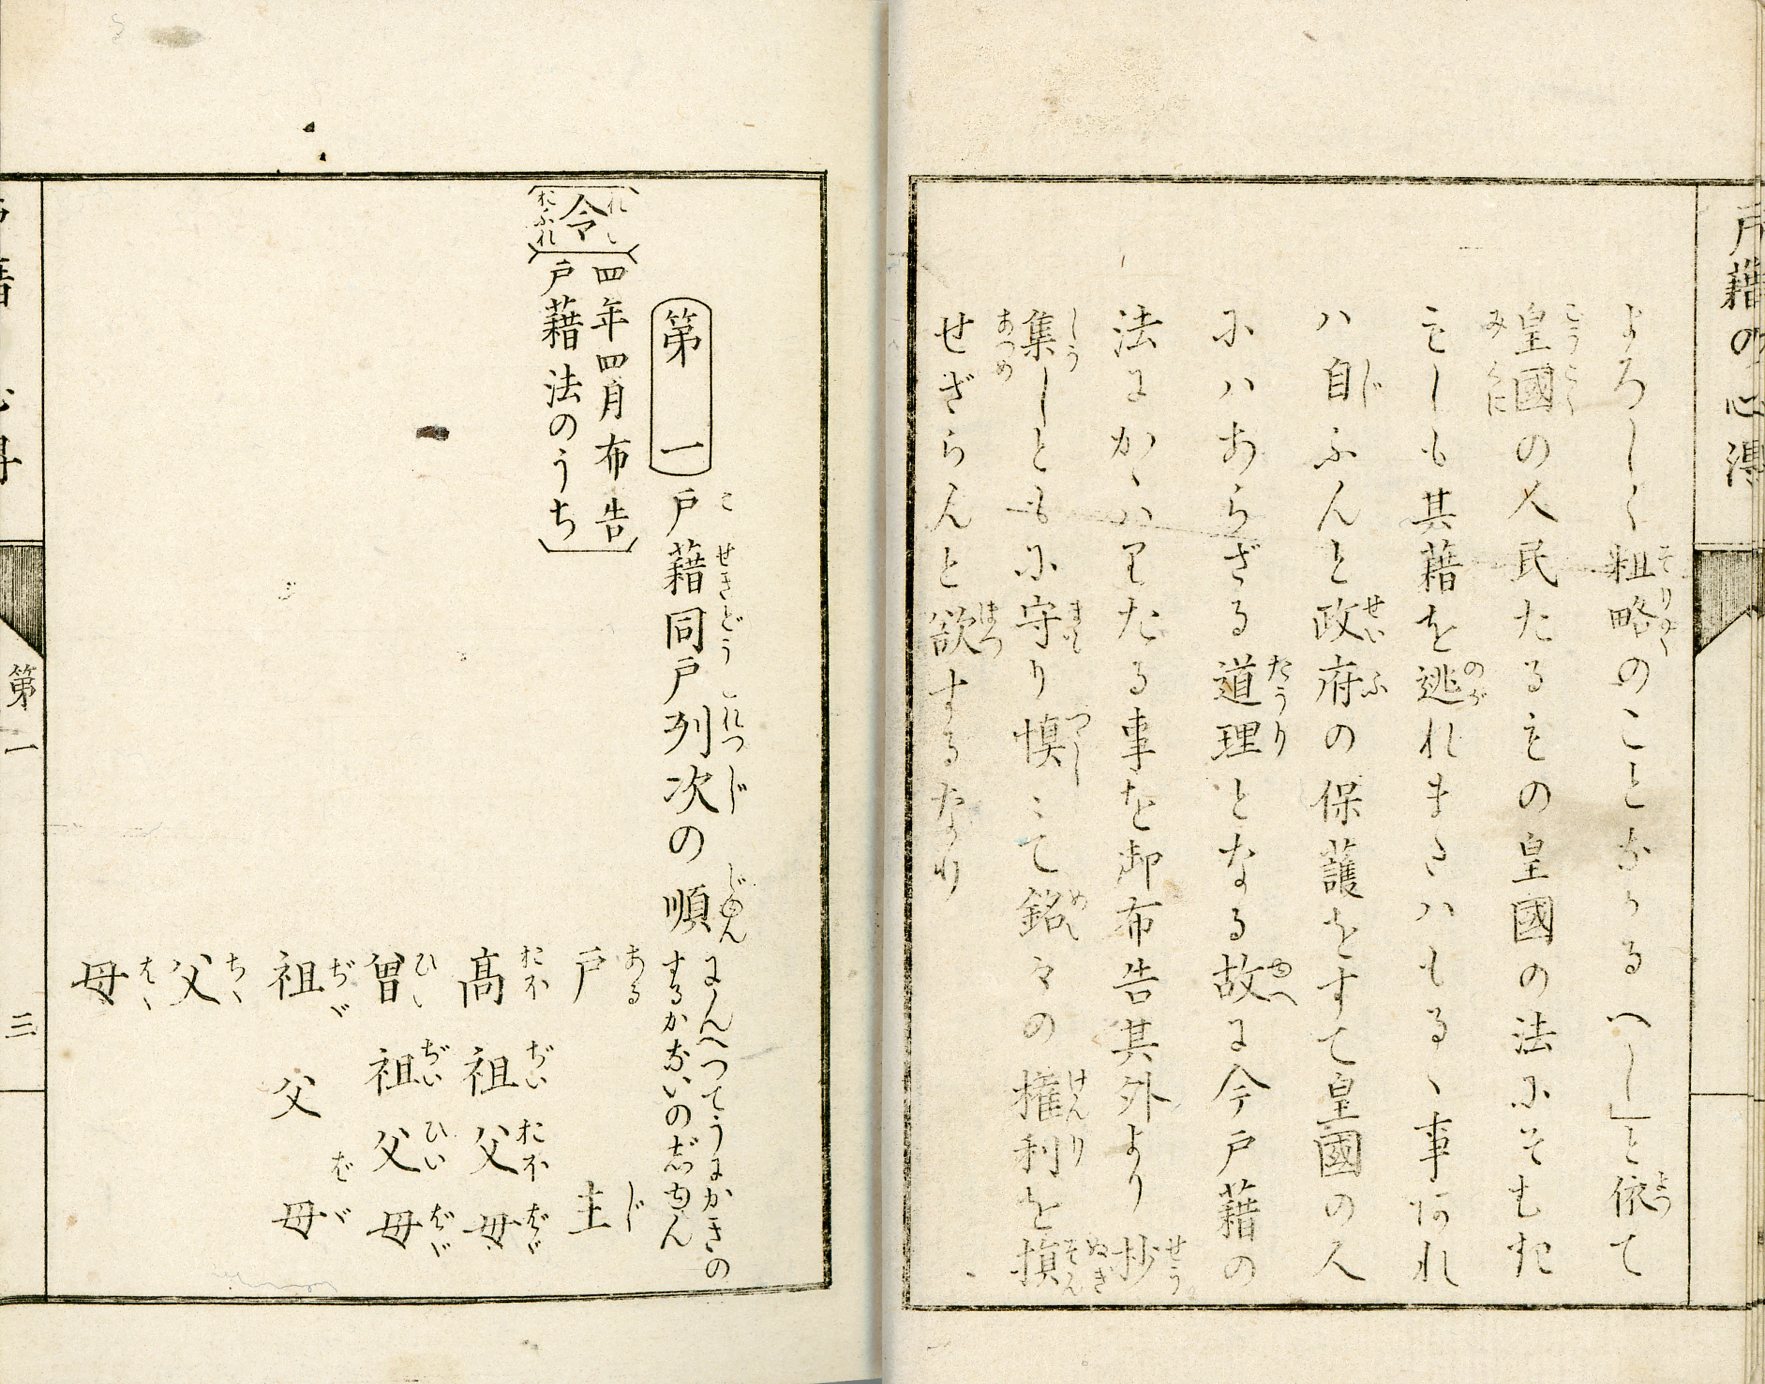 戸籍の心得
よろしく粗略のことなかるへし」と依て
皇國の人民たるもの皇國の法にそむき
もしも其籍を逃れまたハもるゝ事あれ
ハ自ふんと政府の保護をすて皇國の人
にハあらざる道理となる故に今戸籍の
法にかゝハりたる事を御布告其外より抄
集しともに守り慎みて銘々の権利を損
せざらんと欲するなり
第一 戸籍同戸列次の順
にんべつてうにかきの
するかないのじゆん
令 四年四月布告
戸籍法のうち
戸主
高祖父母
曽祖父母
祖父母
父
母
第一
三